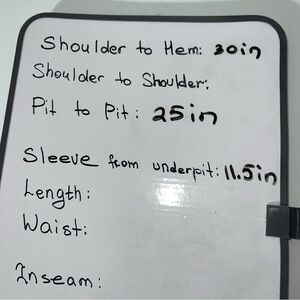 Shoulder to Hem: 30in
Shoulder to Shoulder:
Pit to Pit: 25in
Sleeve from underpit: 11.5in
Length:
Waist:
Inseam: